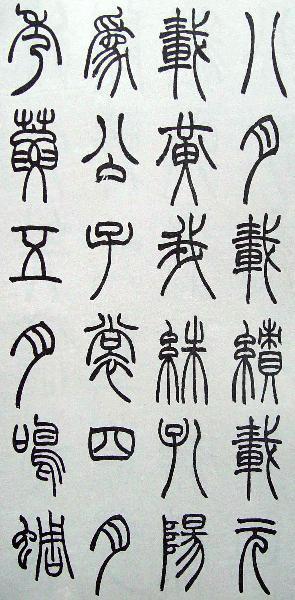 八月載績載元
載黃我絑孔陽
爲公子裳四月
秀葽五月鳴蜩